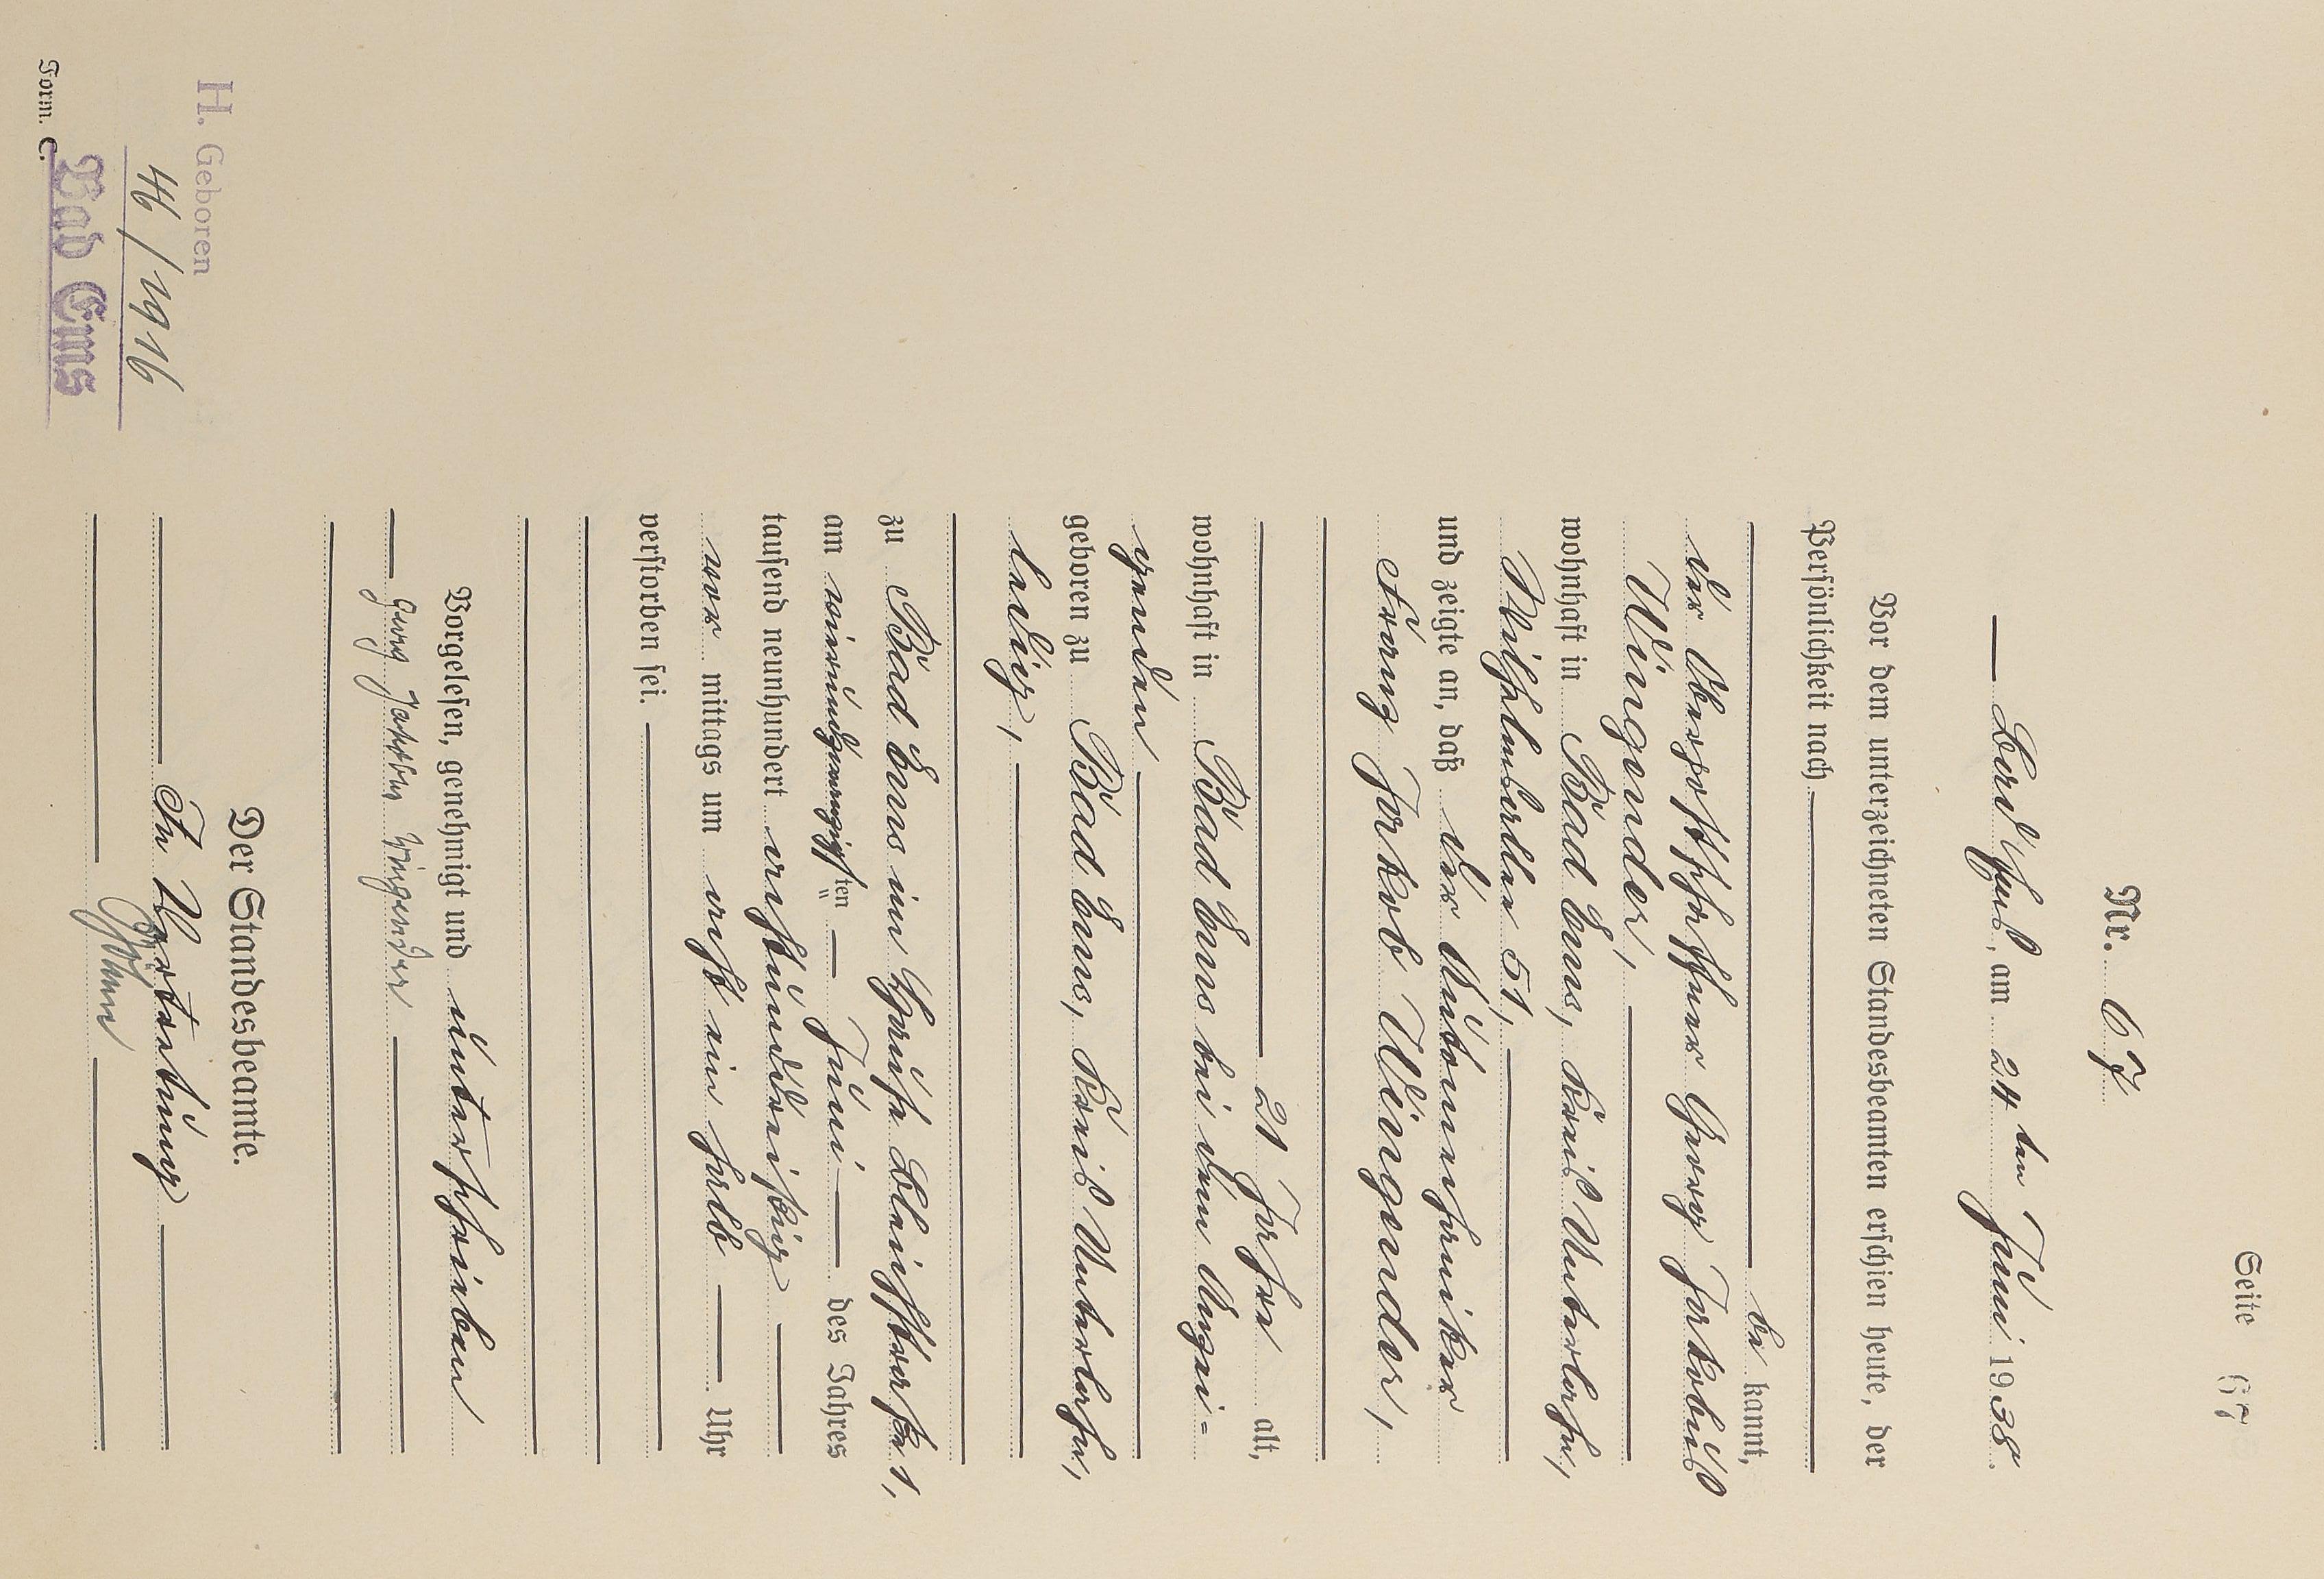 Seite 67
Nr. 67
Bad Ems, am 24ten Juni 1938.
Vor dem unterzeichneten Standesbeamten erschien heute, der
Persönlichkeit nach
be kannt,
der Georg Jakobus
Wingender,
wohnhaft in Bad Ems, Kreis Unterlahn,
51,
und zeigte an, daß der Automechaniker
Franz Jakob Wingender,
21 Jahre alt,
wohnhaft in Bad Ems bei dem Anzei-
genden
geboren zu Bad Ems, Kreis Unterlahn,
ledig,
zu Bad Ems im Hause Bleichstraße 1,
am vierundzwanzigsten Juni des Jahres
tausend neunhundert achtunddreißig
vor mittags um acht ein halb Uhr
verstorben sei.
Vorgelesen, genehmigt und unterschrieben
Georg Wingender
Der Standesbeamte.
In Vertretung
H. Geboren
46/1916
Bad Ems
Form. C.